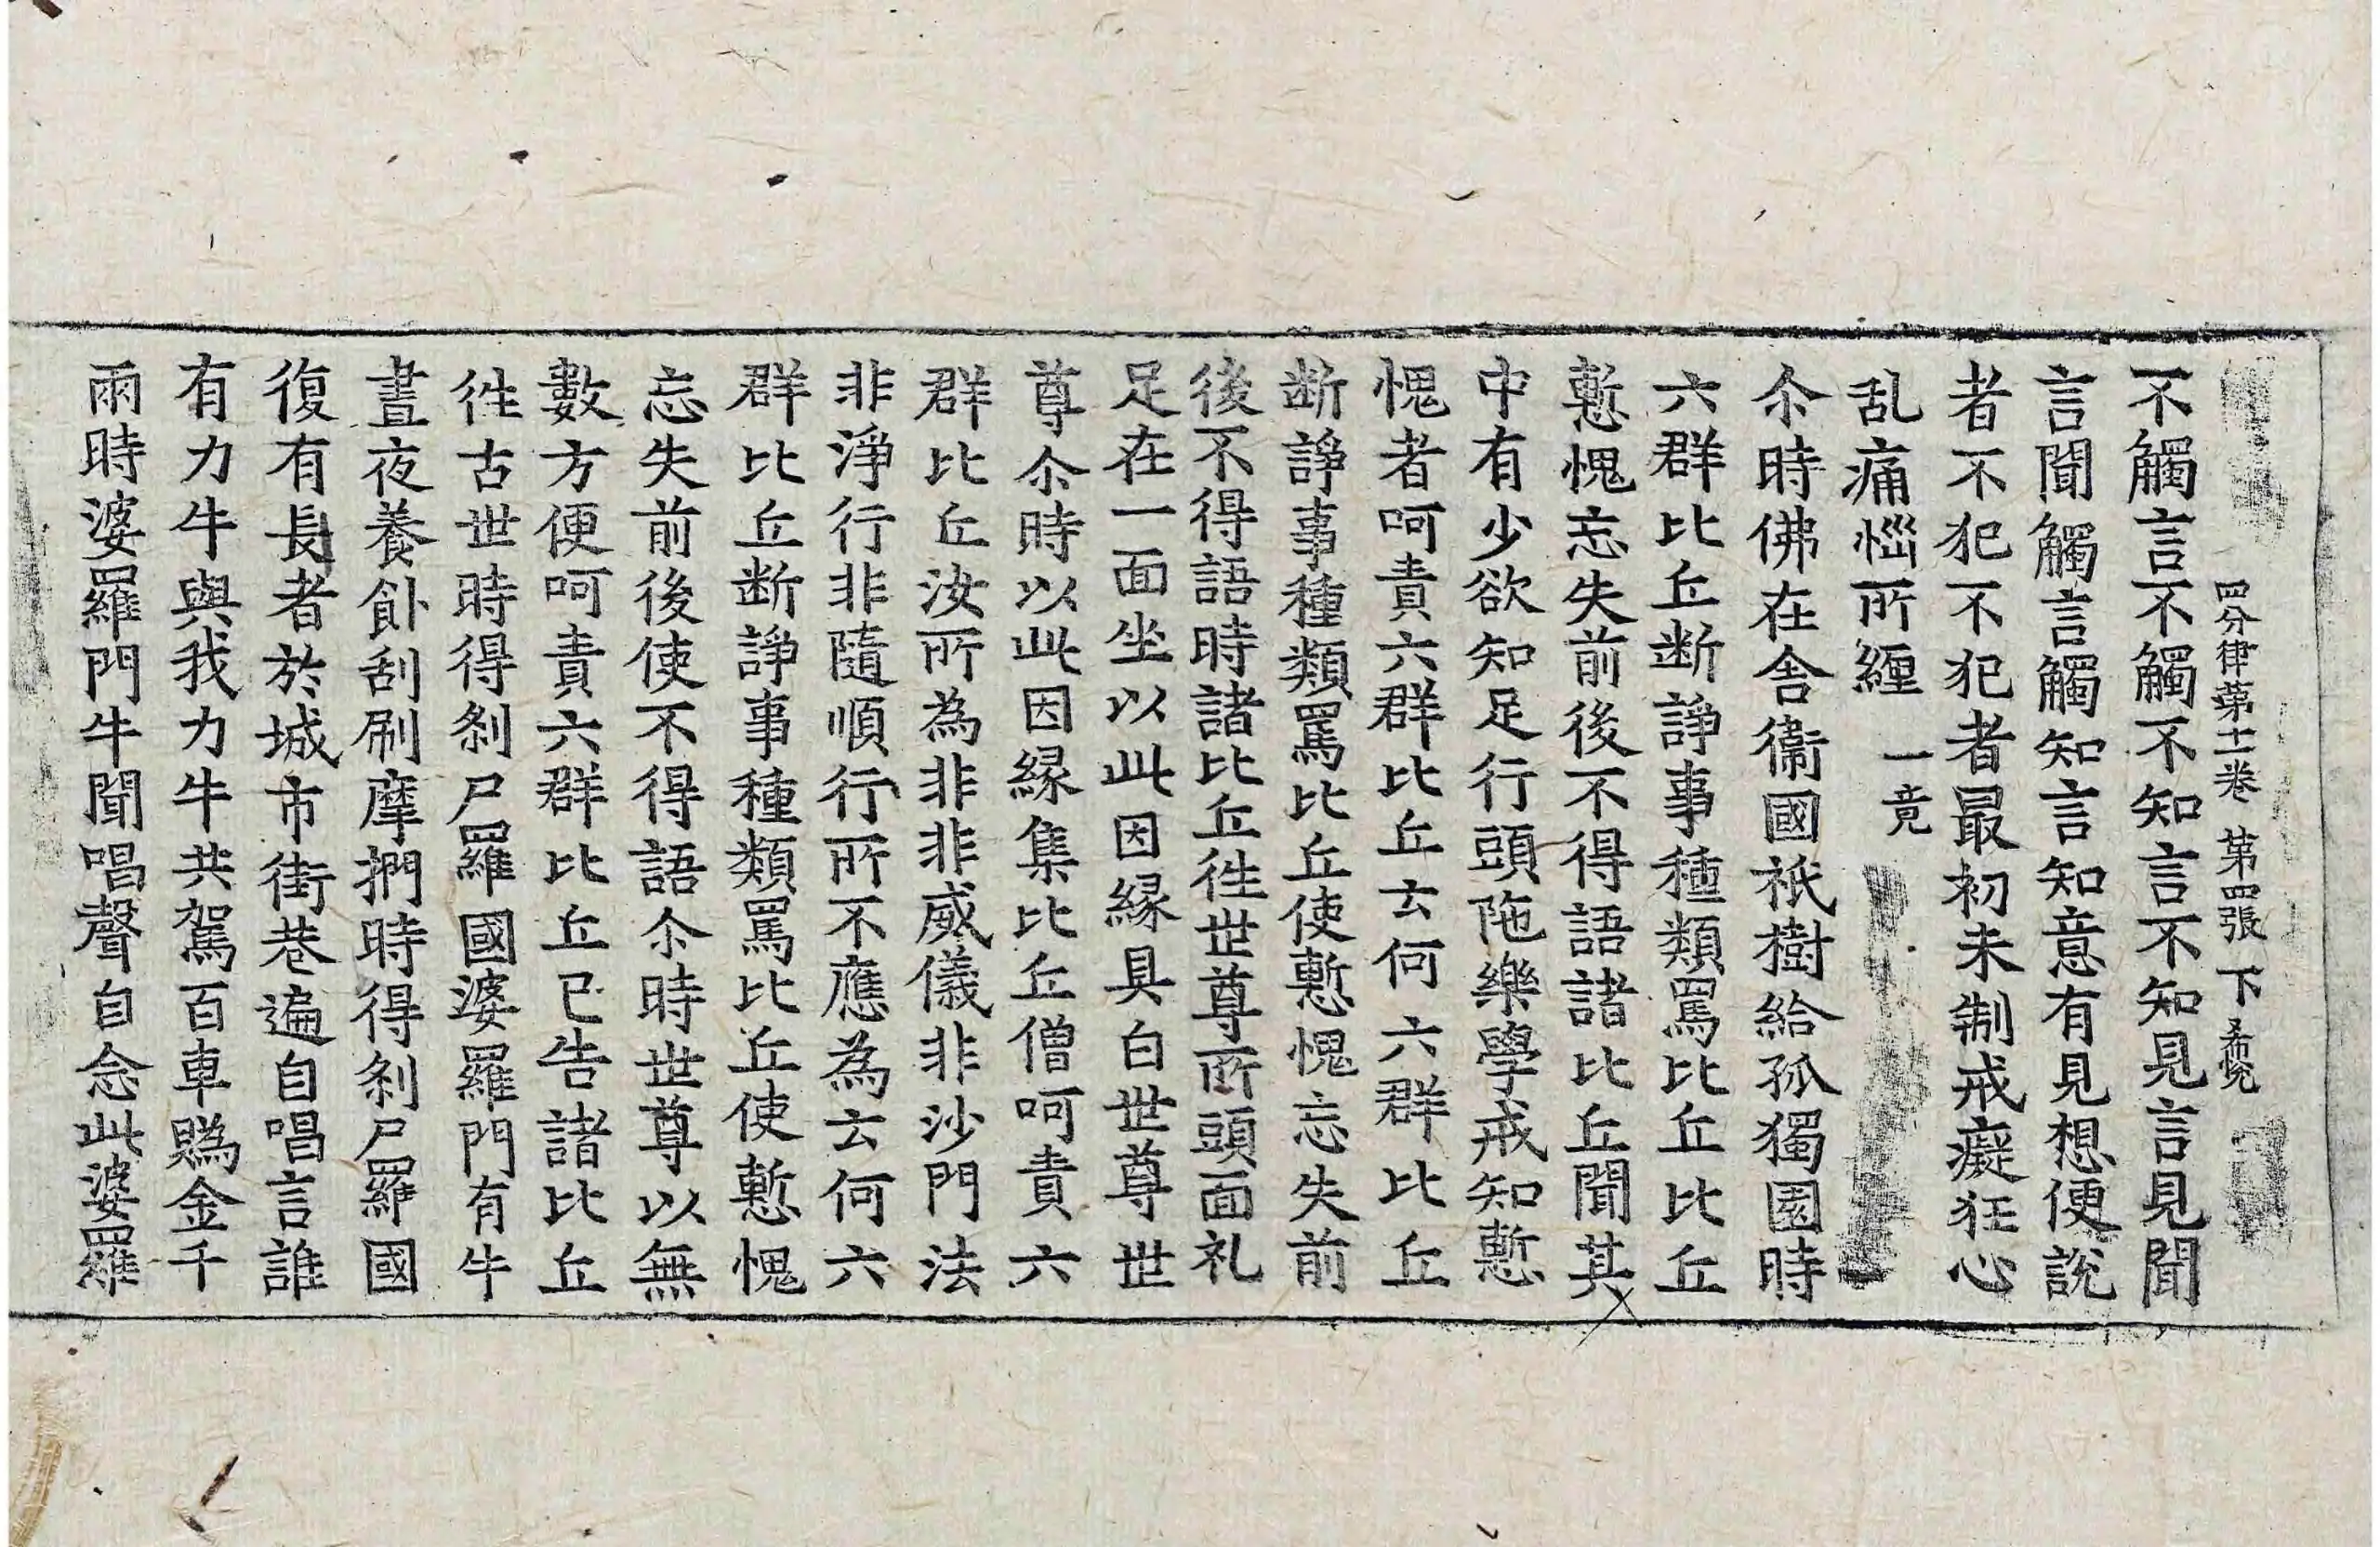 四分律苐十一卷 第四張 下
不觸言不觸不知言不知見言見聞
言聞觸言觸知言知意有見想便說
者不犯不犯者最初未制戒癡狂心
乱痛惱所纒 一竟
尒時佛在舍衞國祇樹給孤獨園時
六群比丘断諍事種類罵比丘比丘
慙愧忘失前後不得語諸比丘聞其
中有少欲知足行頭陁樂學戒知慙
愧者呵責六群比丘云何六群比丘
断諍事種類罵比丘使慙愧忘失前
後不得語時諸比丘徃世尊所頭面礼
足在一面坐以此因縁具白世尊世
尊尒時以此因縁集比丘僧呵責六
群比丘汝所為非非威儀非沙門法
非淨行非隨順行所不應為云何六
群比丘断諍事種類罵比丘使慙愧
忘失前後使不得語尒時世尊以無
數方便呵責六群比丘已告諸比丘
徃古世時得刹尸羅國婆羅門有牛
晝夜養飤刮刷摩捫時得刹尸羅國
復有長者於城市街巷遍自唱言誰
有力牛與我力牛共駕百車賭金千
兩時婆羅門牛聞唱聲自念此婆羅